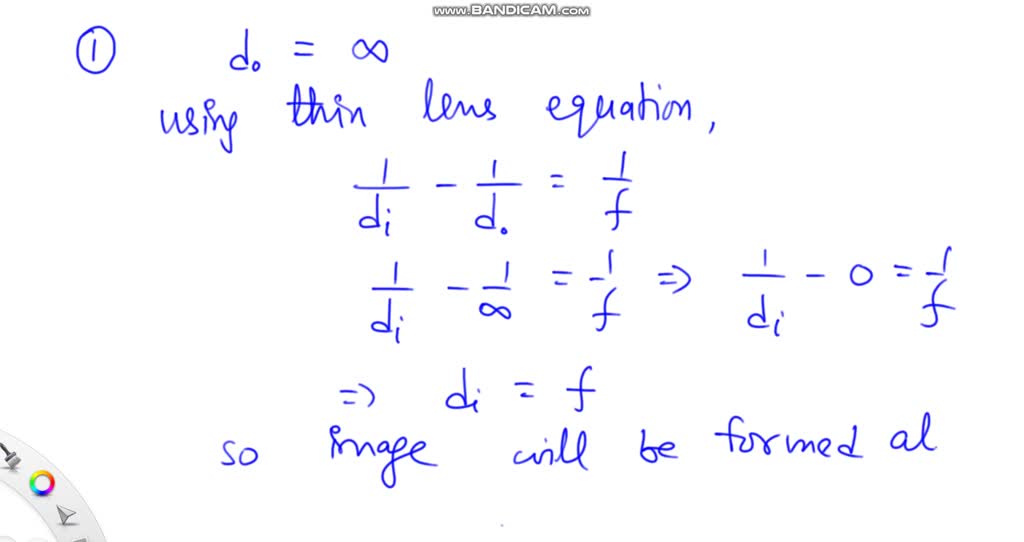 www.BANDICAM.com
① d₀ = ∞
using thin lens equation,
1/dᵢ - 1/d₀ = 1/f
1/dᵢ - 1/∞ = 1/f => 1/dᵢ - 0 = 1/f
=> dᵢ = f
so image will be formed al